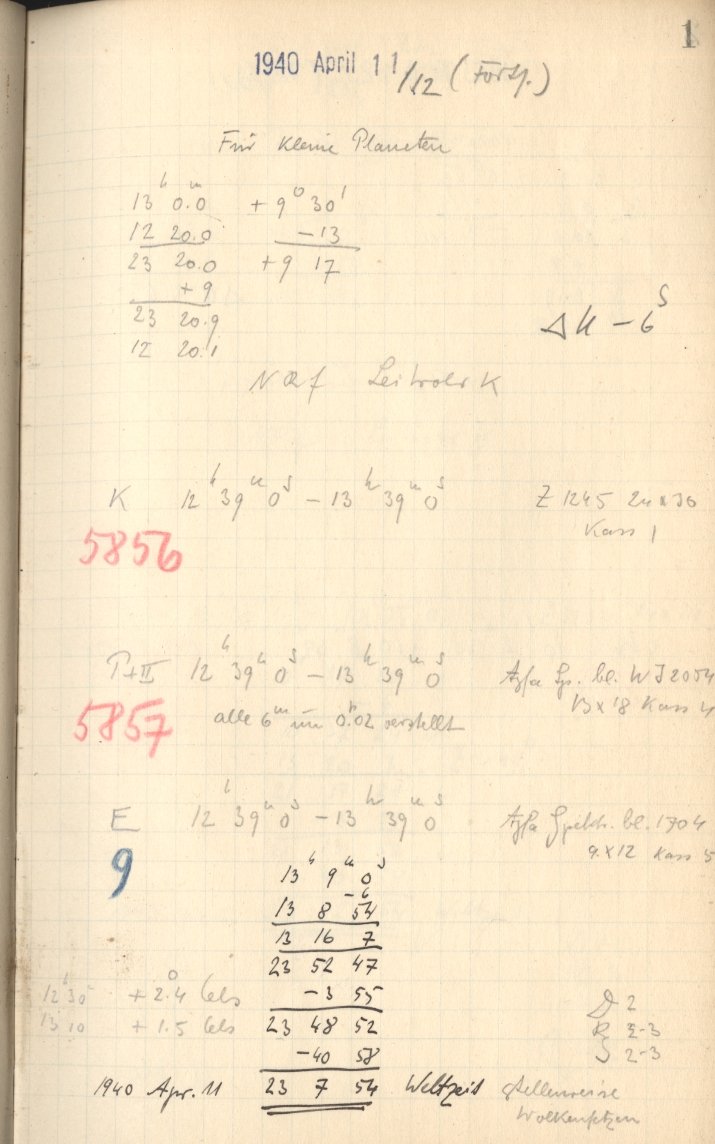 1
1940 April 11/12 (Forts.)
Für kleine Planeten
13ʰ 0.0ᵐ + 9° 30'
12 20.0 – 13
23 20.0 + 9 17
+ 9
23 20.9
12 20.1
ΔU – 6ˢ
Leitrohr K
K 12ʰ 39ᵐ 0ˢ – 13ʰ 39ᵐ 0ˢ Z 1245 24 x 30
Kass 1
5856
P+II 12ʰ 39ᵐ 0ˢ – 13ʰ 39ᵐ 0ˢ Agfa Sp. bl. WJ 2054
13 x 18 Kass 4
5857 alle 6ᵐ um 0.02 verstellt
E 12ʰ 39ᵐ 0ˢ – 13ʰ 39ᵐ 0ˢ Agfa Spektr. bl. 1704
9 x 12 Kass 5
9
13ʰ 9ᵐ 0ˢ
– 6
13 8 54
13 16 7
23 52 47
12ʰ 30 + 2.4° Cels – 3 55
13 10 + 1.5 Cels 23 48 52
– 40 58
D 2
R 2-3
S 2-3
1940 Apr. 11 23 7 54 Weltzeit stellenweise
Wolkenfetzen